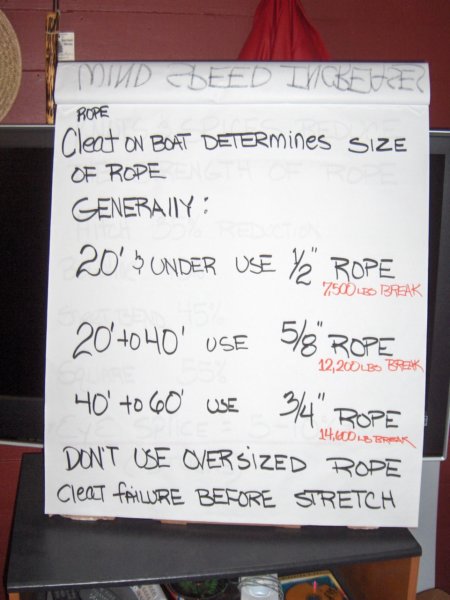 WIND SPEED INCREASES
ROPE
Cleat ON BOAT DETERMINES SIZE
OF ROPE
GENERALLY:
20' & UNDER USE 1/2" ROPE
7,500 LBS BREAK
20' to 40' USE 5/8" ROPE
12,200 LBS BREAK
40' to 60' USE 3/4" ROPE
14,600 LB BREAK
DON'T USE OVERSIZED ROPE
Cleat FAILURE BEFORE STRETCH